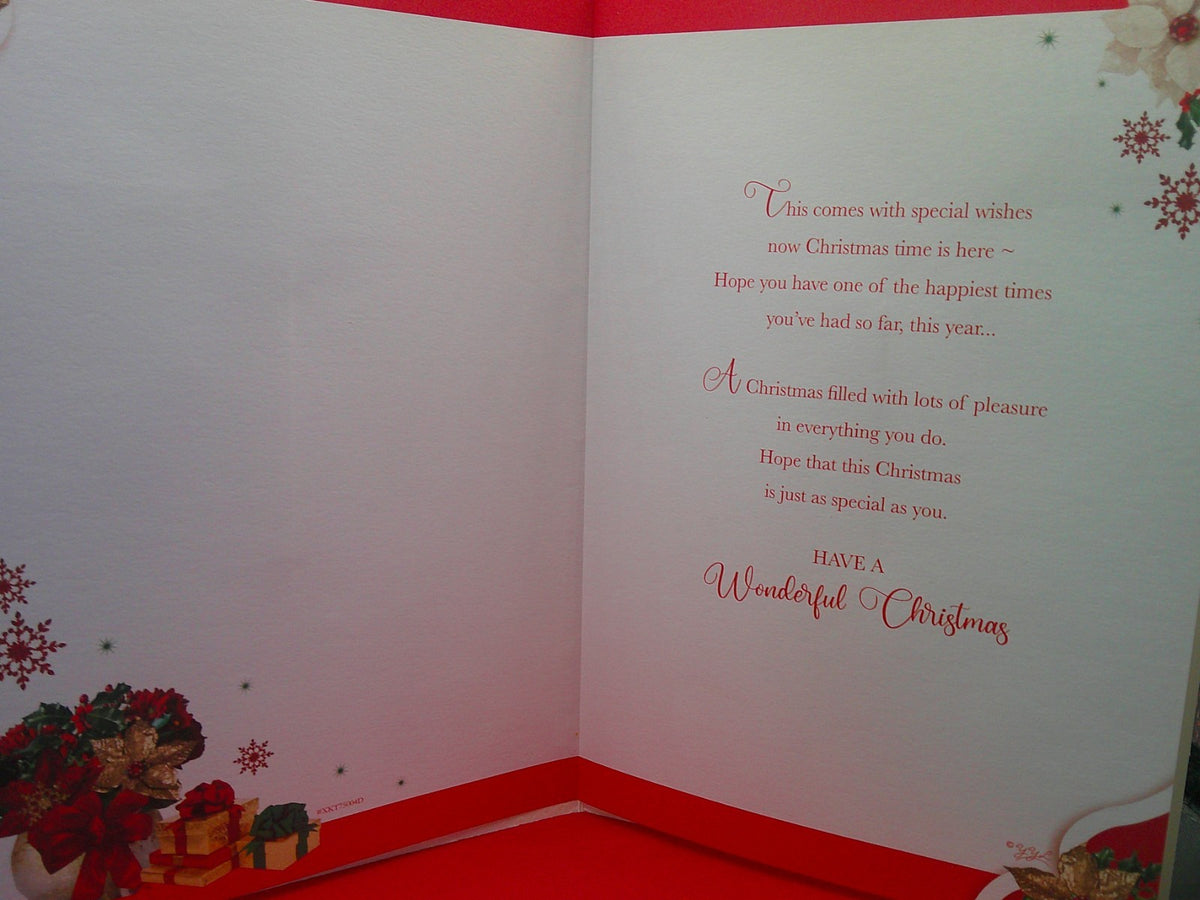 This comes with special wishes
now Christmas time is here ~
Hope you have one of the happiest times
you've had so far, this year...
A Christmas filled with lots of pleasure
in everything you do.
Hope that this Christmas
is just as special as you.
HAVE A
Wonderful Christmas